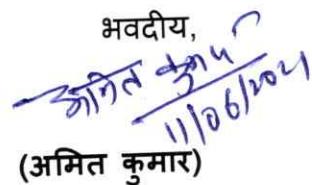 भवदीय,
अमित कुमार
11/06/2021
(अमित कुमार)